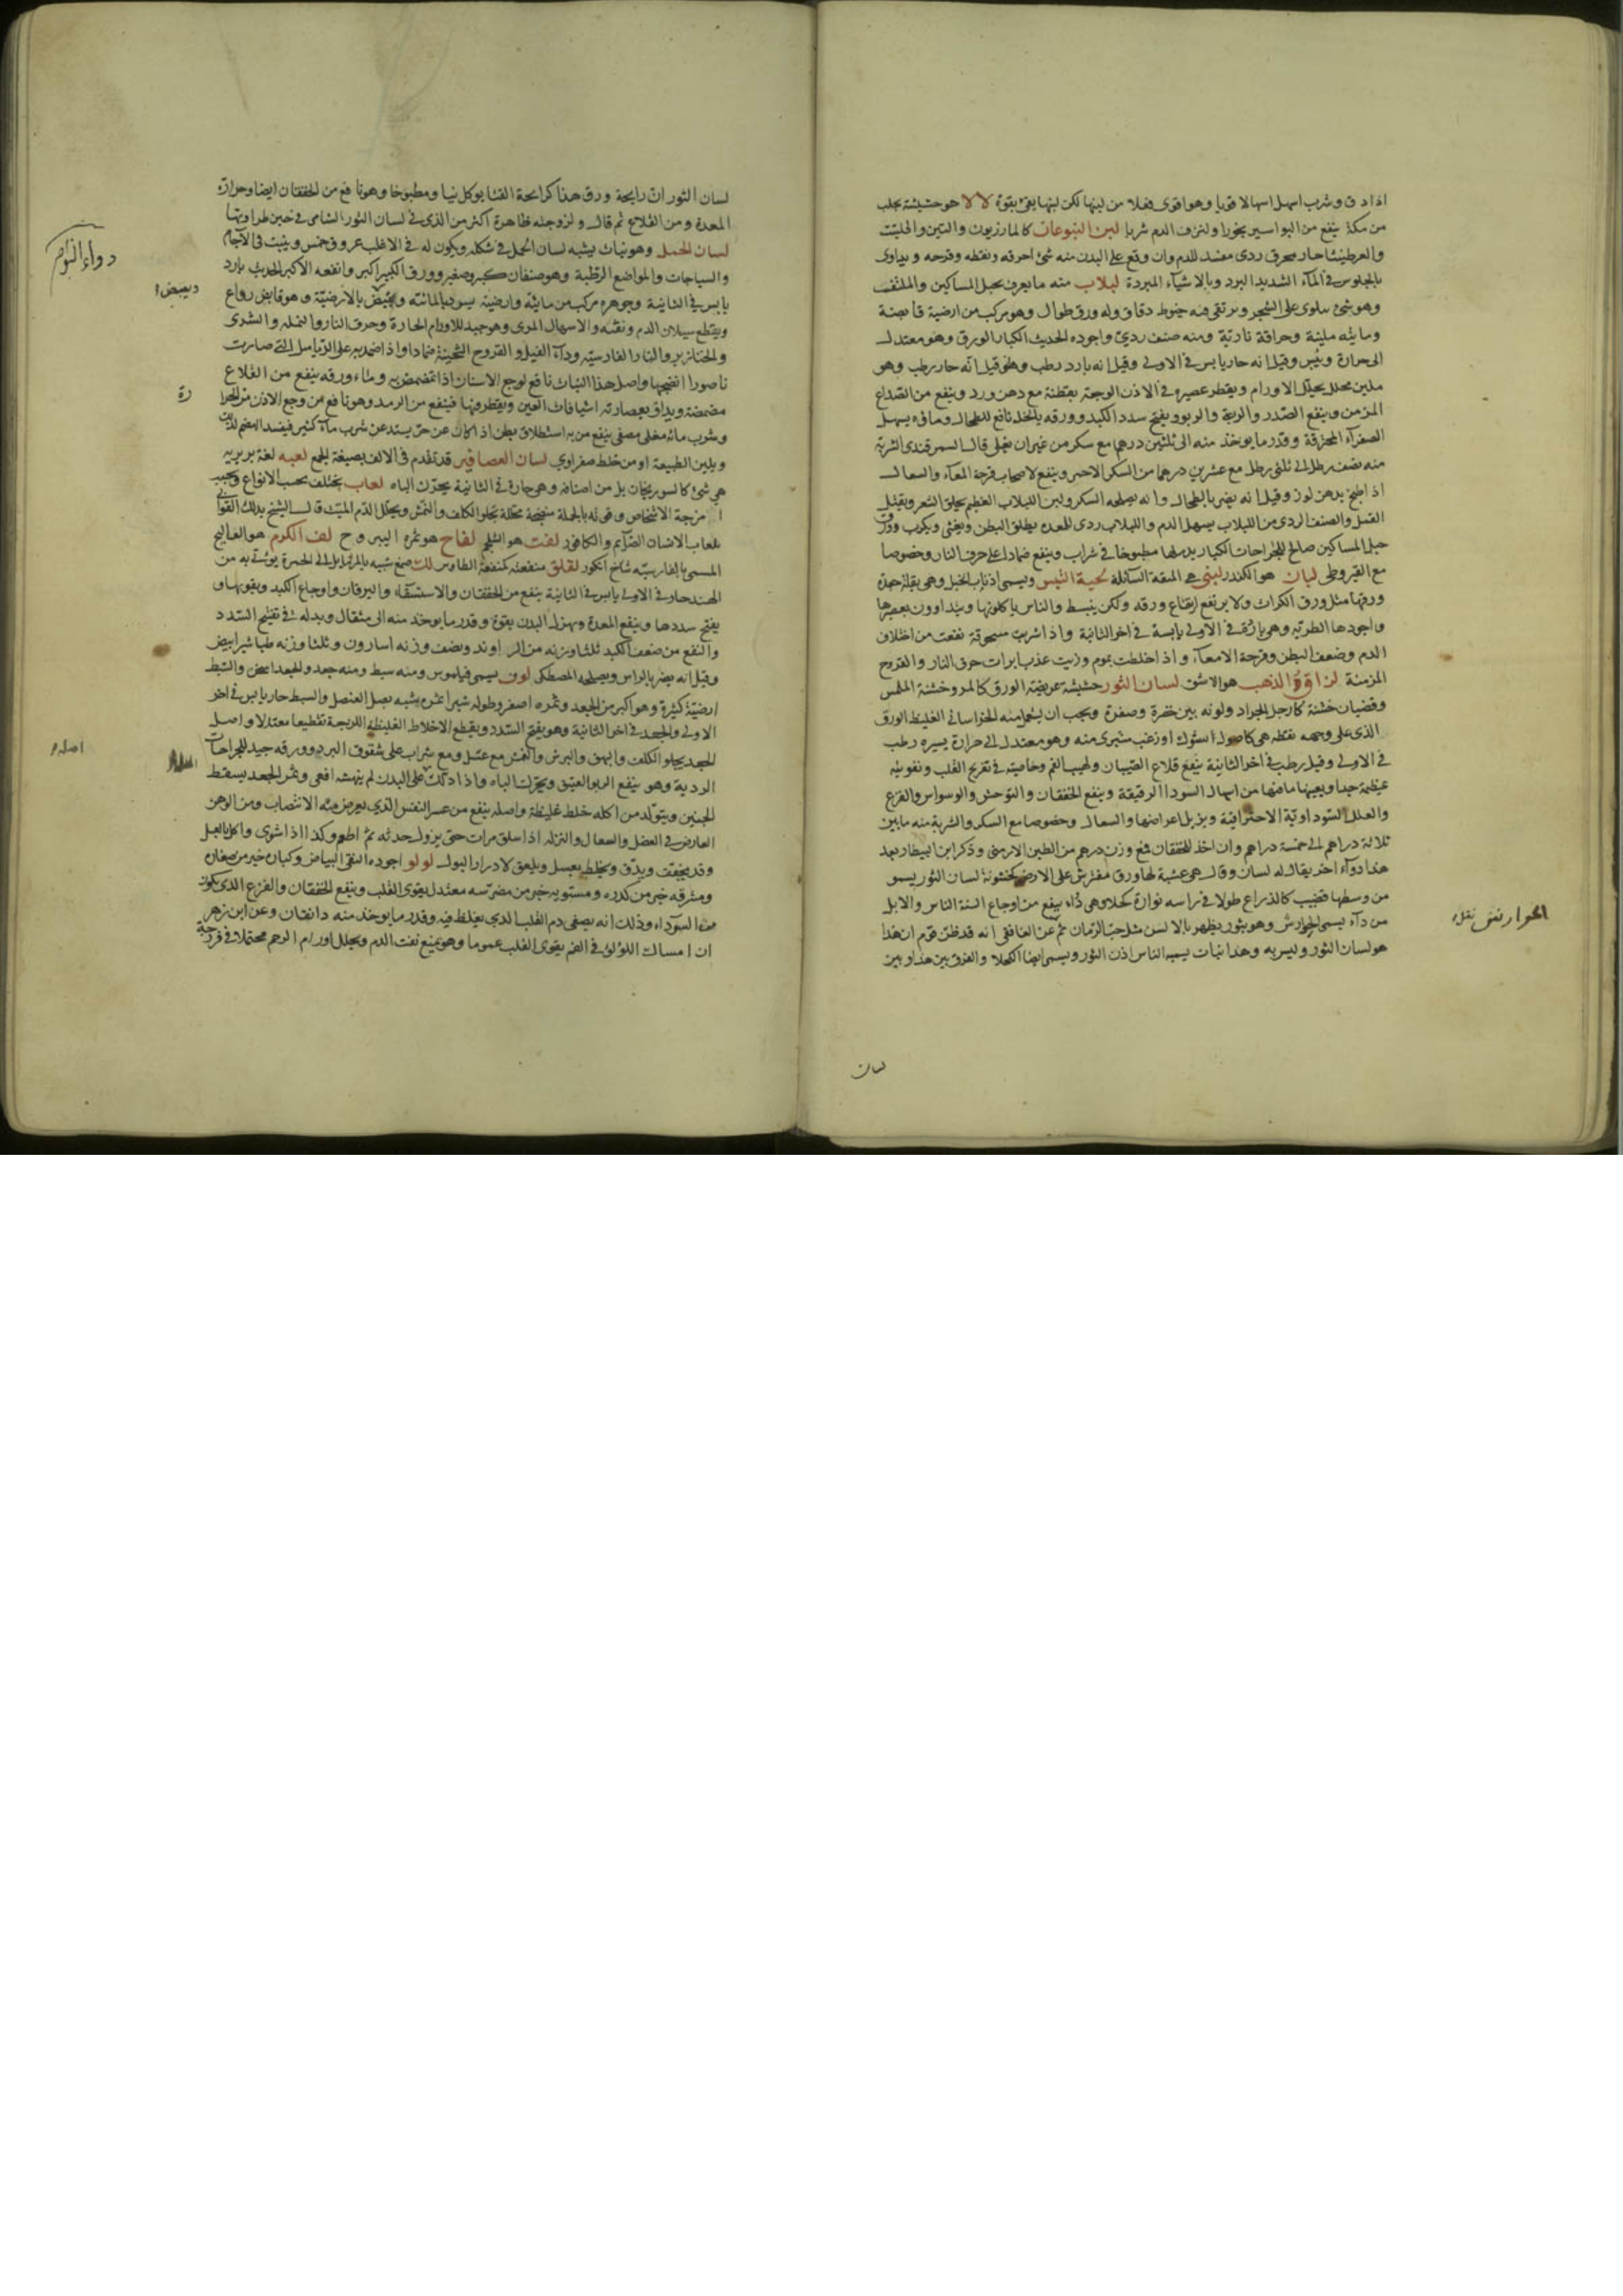 اذا دق وشرب اسهل اسهالا قويا وهو اقوى فعلا من لبنها لكن لبنها يقئ بقوة لالا هو حشيشة تجلب
من مكة ينفع من البواسير بخورا ولنزف الدم شربا لبن اليتوعات كالمازريون والتين والحلتيت
حار محرق ردى مفسد للدم وان وقع على البدن منه شئ احرقه ونفطه وقرحه ويداوى
بالجلوس فى المآء الشديد البرد وبالاشيآء المبردة لبلاب منه ما يعرف بحبل المساكين
وهو شئ يلتوى على الشجر ويرتقى فيه خيوط دقاق وله ورق طوال وهو مركب من ارضية قابضة
ومائية ملينة وحرافة نارية ومنه صنف ردىء واجوده الحديث الكبار الورق وهو معتدل
الى حرارة ويبس وقيل انه حار يابس فى الاولى وقيل انه بارد رطب وقيل انه حار رطب وهو
ملين محلل يحلل الاورام ويقطر عصيره فى الاذن الوجعة بقطنة مع دهن ورد وينفع من الصداع
المزمن وينفع الصدر والرية والربو ويفتح سدد الكبد وورقه بالخل نافع للطحال وماؤه يسهل
الصفرآء المحترقة وقدر ما يوخذ منه الى ثلثين درهما مع سكر من غير ان يغلى قال السمرقندى الشربة
منه نصف رطل الى ثلثى رطل مع عشرين درهما من السكر الاحمر وينفع لاصحاب قرحة المعآء والسعال
اذا طبخ بدهن لوز وقيل انه يضر بالطحال وانه يصلحه السكر ولبن اللبلاب العظيم يحلق الشعر ويقتل
القمل والصنف الردى من اللبلاب يسهل الدم واللبلاب ردى للمعدة يطلق البطن ويغثى ويكرب وورق
حبل المساكين صالح للجراحات الكبار يدملها مطبوخا فى شراب وينفع ضمادا على حرق النار وخصوصا
مع القيروطى لبان هو الكندر لبنى هى الميعة السائلة لحية التيس ويسمى اذناب الخيل وهى بقلة جعدة
ورقها مثل ورق الكراث ولا يرتفع ارتفاع ورقه ولكن ينبسط والناس ياكلونها ويتداوون بعصيرها
واجودها الطرية وهى باردة فى الاولى يابسة فى اخر الثانية واذا شربت مسحوقة نفعت من اختلاف
الدم وضعف البطن وقرحة الامعآء واذا خلطت بموم وزيت عذب ابرات حرق النار والقروح
المزمنة لزاق الذهب هو الاشق لسان الثور حشيشة عريضة الورق كالمرو خشنة الملمس
وقضبان خشنة كارجل الجراد ولونه بين خضرة وصفرة ويجب ان يستعمل منه الخراسانى الغليظ الورق
الذى على وجهه نقط هى كاصول شوك او زغب متبرى منه وهو معتدل الى حرارة يسيرة رطب
فى الاولى وقيل رطب فى اخر الثانية ينفع قلاع الصبيان ولهيب الفم وخاصيته فى تفريح القلب وتقويته
عظيمة جدا ويعينها ما فيها من اسهال السودا الرقيقة وينفع الخفقان والتوحش والوسواس والفزع
والعلل السوداوية الاحتراقية ويزيل اعراضها والسعال وخصوصا مع السكر والشربة منه ما بين
ثلاثة دراهم الى خمسة دراهم وان اخذ للخفقان فمع وزن درهم من الطين الارمنى وذكر ابن البيطار بعد
هذا دوآء اخر يقال له لسان وقال هى عشبة لها ورق مفترش على الارض كخشونة لسان الثور يسمو
من وسطها قضيب كالذراع طولا فى راسه نوارة كحلا وهى دآء ينفع من اوجاع السنة الناس والابل
من دآء يسمى الحوارش وهو بثور يظهر بالالسن مثل حب الرمان ثم عن الغافقى انه قد ظن قوم ان هذا
هو لسان الثور وليس به وهذا نبات يسميه الناس اذن الثور ويسمى ايضا الكحلا والفرق بين هذا وبين
لسان
لسان الثور ان رايحة ورق هذا كرايحة القثا يوكل نيا ومطبوخا وهو نافع من الخفقان ايضا وحرارة
المعدة ومن القلاع ثم قال ولزوجته ظاهرة اكثر من الذى فى لسان الثور الشامى فى حين طراوتها
لسان الحمل وهو نبات يشبه لسان الحمل فى شكله ويكون له فى الاغلب عروق خمس وينبت فى الآجام
والسياجات والمواضع الرطبة وهو صنفان كبير وصغير وورق الكبير اكبر وانفعه الاكبر الحديث بارد
يابس فى الثانية وجوهره مركب من مائية وارضية يبرد بالمائية ويقبض بالارضية وهو قابض رداع
ويقطع سيلان الدم ونفثه والاسهال المرى وهو جيد للاورام الحارة وحرق النار والنملة والشرى
والخنازير والنار الفارسية ودآء الفيل والقروح الخبيثة ضمادا واذا ضمد به على الدماميل التى صارت
ناصورا انضجها واصل هذا النبات نافع لوجع الاسنان اذا تمضمض به وماء ورقه ينفع من القلاع
مضمضة ويداف بعصارته اشيافات العين ويقطر فيها فينفع من الرمد وهو نافع من وجع الاذن من الحرارة
وشرب مائه مغلى مصفى ينفع من به استطلاق بطن اذا كان عن حر يستدعى شرب مآء كثير فيفسد الهضم
ويلين الطبيعة او من خلط صفراوى لسان العصافير قد تقدم فى الالف بصيغة الجمع لعبه لغة بربرية
هى شئ كالسورنجان بل من اصنافه وهى حارة فى الثانية يحرك الباه لعاب يختلف بحسب الانواع وبحسب
امزجة الاشخاص وقوته بالجملة منضجة محللة تجلو الكلف والنمش ويحلل الدم الميت قال الشيخ يدلك القوابى
بلعاب الانسان الصآيم والكافور لفت هو السلجم لفاح هو ثمرة اليبروح لف الكرم هو العساليج
المسمى بالفارسية شاخ انكور لقلق منفعته كمنفعة الطاوس لك صمغ شبيه بالمر مايل الى الحمرة يوتى به من
الهند حار فى الاولى يابس فى الثانية ينفع من الخفقان والاستسقاء واليرقان واوجاع الكبد ويقويها و
يفتح سددها وينفع المعدة ويهزل البدن بقوة وقدر ما يوخذ منه الى مثقال وبدله فى تفتيح السدد
والنفع من ضعف الكبد ثلثا وزنه من الراوند ونصف وزنه اسارون وثلثا وزنه طباشير ابيض
وقيل انه يضر بالراس ويصلحه المصطكى لوف يسمى ومنه سبط ومنه جعد والجعد اسخن والسبط
ارضيته كثيرة وهو اكبر من الجعد وثمره اصفر وطوله شبر ثمره يشبه بصل العنصل والسبط حار يابس فى اخر
الاولى والجعد فى اخر الثانية وهو يفتح السدد ويقطع الاخلاط الغليظة اللزجة تقطيعا معتدلا واصل
الجعد يجلو الكلف والبهق والبرش والنمش مع عسل ومع شراب على شقوق البرد وورقه جيد للجراحات
الردية وهو ينفع الربو العتيق ويحرك الباه واذا دلك على البدن لم ينهشه افعى وثمر الجعد يسقط
الجنين ويتولد من اكله خلط غليظ واصله ينفع من عسر النفس الذى يعرض منه الانتصاب ومن الوهن
العارض فى العضل والسعال والنزلة اذا سلق مرات حتى يزول حدته ثم اطعم وكذا اذا شوى واكل بالعسل
وقد يجفف ويدق ويخلط بعسل ويلعق لادرار البول لولو اجوده النقى البياض وكباره خير من صغاره
ومشرقه خير من كدره ومستويه خير من مضرسه معتدل يقوى القلب وينفع الخفقان والفزع الذى يكون
من السودآء وذلك انه يصفى دم القلب الذى يغلظ فيه وقدر ما يوخذ منه دانقان وعن ابن زهر
ان امساك اللؤلؤ فى الفم يقوى القلب عموما وهو يمنع نفث الدم ويحلل اورام الرحم محتملا فى فرزجة